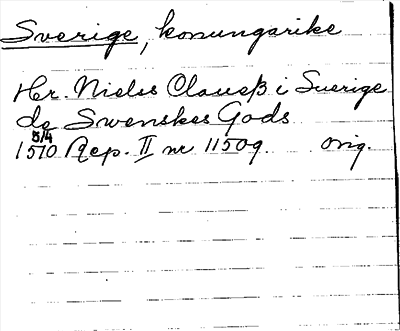 Sverige, konungarike
Hr. Nielss Clausß i Suerige
de Swenskes Gods
5/4
1510 Rep. II nr 11509. orig.